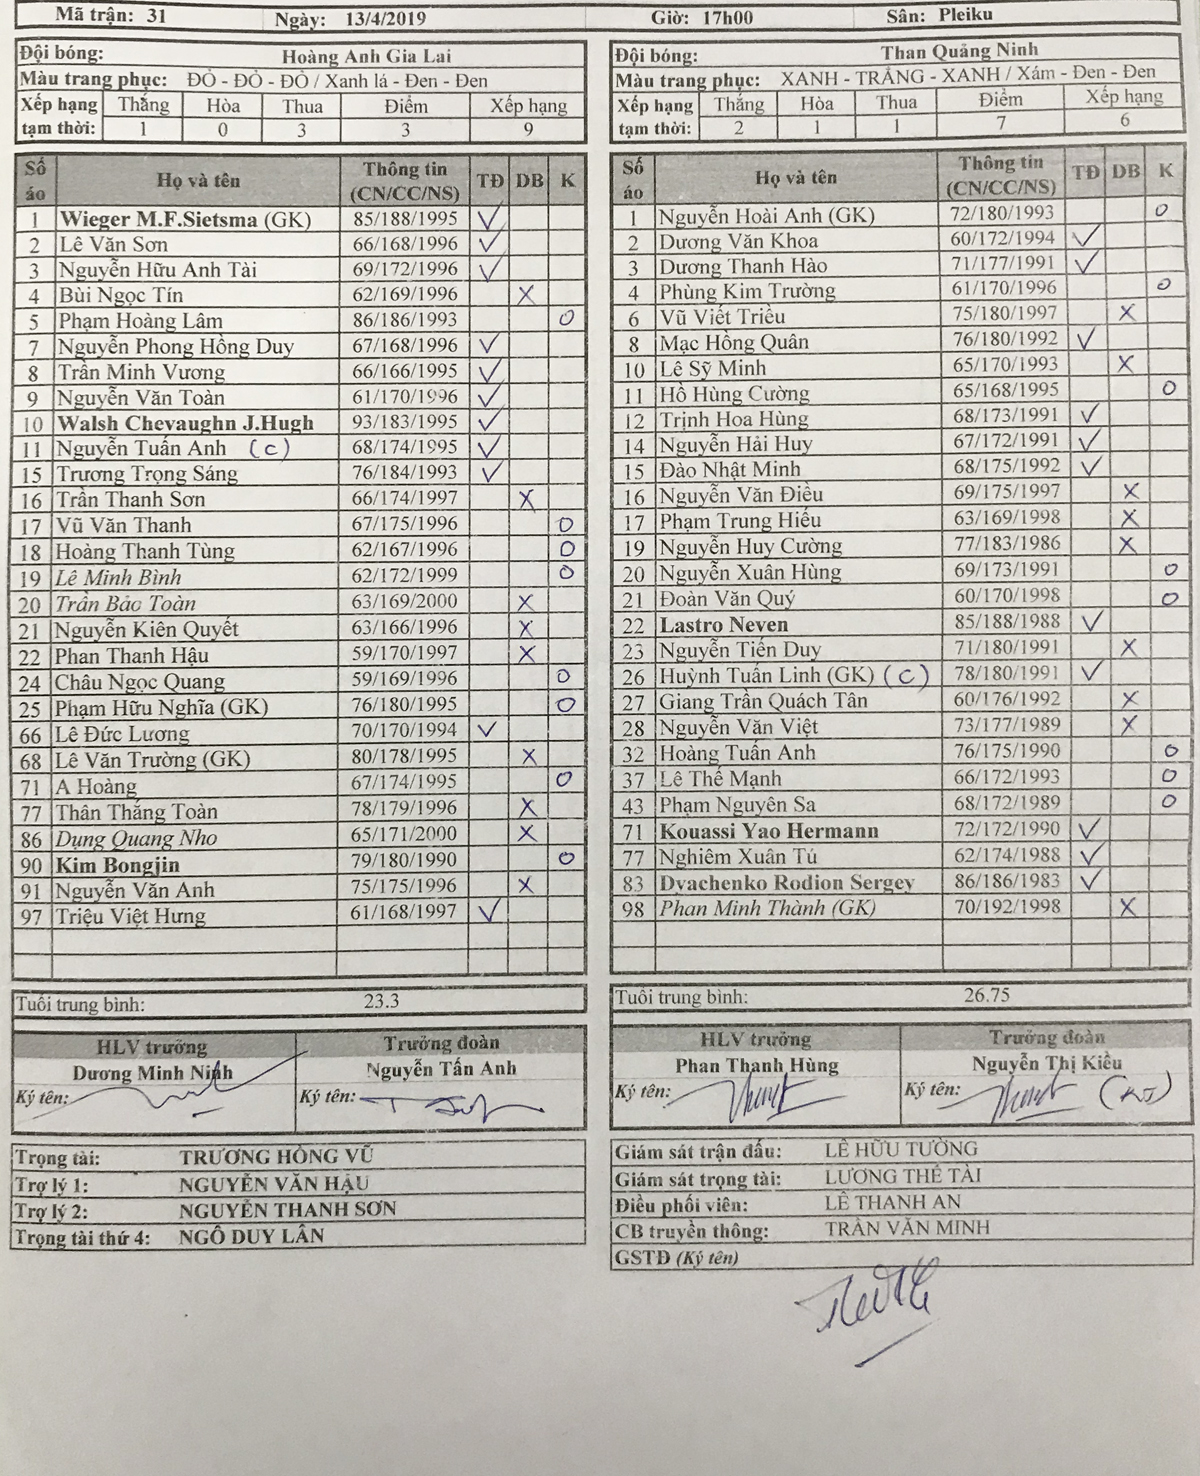 Mã trận: 31 Ngày: 13/4/2019 Giờ: 17h00 Sân: Pleiku
Đội bóng: Hoàng Anh Gia Lai
Màu trang phục: ĐỎ - ĐỎ - ĐỎ / Xanh lá - Đen - Đen
Xếp hạng tạm thời: Thắng Hòa Thua Điểm Xếp hạng
1 0 3 3 9
Số áo Họ và tên Thông tin (CN/CC/NS) TĐ DB K
1 Wieger M.F.Sietsma (GK) 85/188/1995 ✓
2 Lê Văn Sơn 66/168/1996 ✓
3 Nguyễn Hữu Anh Tài 69/172/1996 ✓
4 Bùi Ngọc Tín 62/169/1996 X
5 Phạm Hoàng Lâm 86/186/1993 O
7 Nguyễn Phong Hồng Duy 67/168/1996 ✓
8 Trần Minh Vương 66/166/1995 ✓
9 Nguyễn Văn Toàn 61/170/1996 ✓
10 Walsh Chevaughn J.Hugh 93/183/1995 ✓
11 Nguyễn Tuấn Anh (C) 68/174/1995 ✓
15 Trương Trọng Sáng 76/184/1993 ✓
16 Trần Thanh Sơn 66/174/1997 X
17 Vũ Văn Thanh 67/175/1996 O
18 Hoàng Thanh Tùng 62/167/1996 O
19 Lê Minh Bình 62/172/1999 O
20 Trần Bảo Toàn 63/169/2000 X
21 Nguyễn Kiên Quyết 63/166/1996 X
22 Phan Thanh Hậu 59/170/1997 X
24 Châu Ngọc Quang 59/169/1996 O
25 Phạm Hữu Nghĩa (GK) 76/180/1995 O
66 Lê Đức Lương 70/170/1994 ✓
68 Lê Văn Trường (GK) 80/178/1995 X
71 A Hoàng 67/174/1995 O
77 Thân Thắng Toàn 78/179/1996 X
86 Dụng Quang Nho 65/171/2000 X
90 Kim Bongjin 79/180/1990 O
91 Nguyễn Văn Anh 75/175/1996 X
97 Triệu Việt Hưng 61/168/1997 ✓
Tuổi trung bình: 23.3
HLV trưởng Trưởng đoàn
Dương Minh Ninh Nguyễn Tấn Anh
Ký tên: Ký tên:
Trọng tài: TRƯƠNG HỒNG VŨ
Trợ lý 1: NGUYỄN VĂN HẬU
Trợ lý 2: NGUYỄN THANH SƠN
Trọng tài thứ 4: NGÔ DUY LÂN
Đội bóng: Than Quảng Ninh
Màu trang phục: XANH - TRẮNG - XANH / Xám - Đen - Đen
Xếp hạng tạm thời: Thắng Hòa Thua Điểm Xếp hạng
2 1 1 7 6
Số áo Họ và tên Thông tin (CN/CC/NS) TĐ DB K
1 Nguyễn Hoài Anh (GK) 72/180/1993 O
2 Dương Văn Khoa 60/172/1994 ✓
3 Dương Thanh Hào 71/177/1991 ✓
4 Phùng Kim Trường 61/170/1996 O
6 Vũ Viết Triều 75/180/1997 X
8 Mạc Hồng Quân 76/180/1992 ✓
10 Lê Sỹ Minh 65/170/1993 X
11 Hồ Hùng Cường 65/168/1995 O
12 Trịnh Hoa Hùng 68/173/1991 ✓
14 Nguyễn Hải Huy 67/172/1991 ✓
15 Đào Nhật Minh 68/175/1992 ✓
16 Nguyễn Văn Điều 69/175/1997 X
17 Phạm Trung Hiếu 63/169/1998 X
19 Nguyễn Huy Cường 77/183/1986 X
20 Nguyễn Xuân Hùng 69/173/1991 O
21 Đoàn Văn Quý 60/170/1998 O
22 Lastro Neven 85/188/1988 ✓
23 Nguyễn Tiến Duy 71/180/1991 X
26 Huỳnh Tuấn Linh (GK) (C) 78/180/1991 ✓
27 Giang Trần Quách Tân 60/176/1992 X
28 Nguyễn Văn Việt 73/177/1989 X
32 Hoàng Tuấn Anh 76/175/1990 O
37 Lê Thế Mạnh 66/172/1993 O
43 Phạm Nguyên Sa 68/172/1989 O
71 Kouassi Yao Hermann 72/172/1990 ✓
77 Nghiêm Xuân Tú 62/174/1988 ✓
83 Dyachenko Rodion Sergey 86/186/1983 ✓
98 Phan Minh Thành (GK) 70/192/1998 X
Tuổi trung bình: 26.75
HLV trưởng Trưởng đoàn
Phan Thanh Hùng Nguyễn Thị Kiều
Ký tên: Ký tên:
Giám sát trận đấu: LÊ HỮU TƯỜNG
Giám sát trọng tài: LƯƠNG THẾ TÀI
Điều phối viên: LÊ THANH AN
CB truyền thông: TRẦN VĂN MINH
GSTĐ (Ký tên)